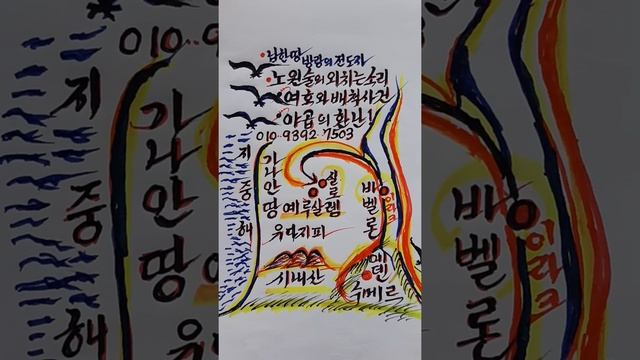 남한땅 방랑의 전도자
노원술의 외치는 소리
여호와 배척사건
야곱의 환난!
010 9392 7503
지중해
가나안 땅
실로
예루살렘
유다지파
바벨론
이라크
시내산
에덴
수메르
010
지중해
가나안 땅
바벨론
이라크